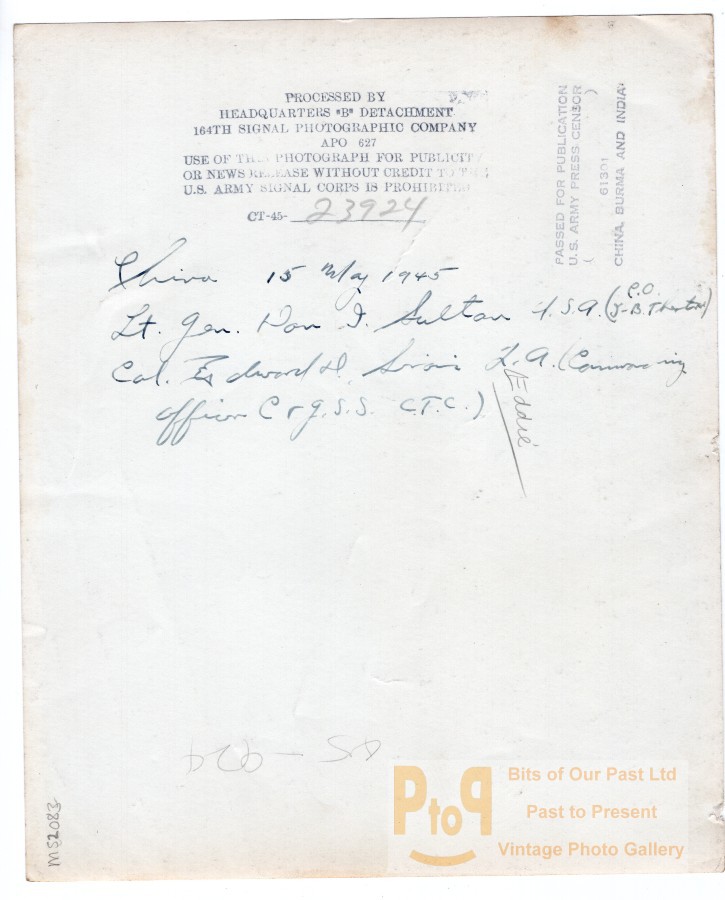 PROCESSED BY
HEADQUARTERS "B" DETACHMENT
164TH SIGNAL PHOTOGRAPHIC COMPANY
APO 627
USE OF THIS PHOTOGRAPH FOR PUBLICITY
OR NEWS RELEASE WITHOUT CREDIT TO THE
U.S. ARMY SIGNAL CORPS IS PROHIBITED
CT-45- 23924
PASSED FOR PUBLICATION
U.S. ARMY PRESS CENSOR
( )
61301
CHINA, BURMA AND INDIA
China 15 May 1945
Lt. Gen. Dan I. Sultan U.S.A. (C.O.
Col. Edward H. F.A. (Commanding
Officer C & G.S.S. C.T.C.)
Eddie
MS2083
PtoP
Bits of Our Past Ltd
Past to Present
Vintage Photo Gallery